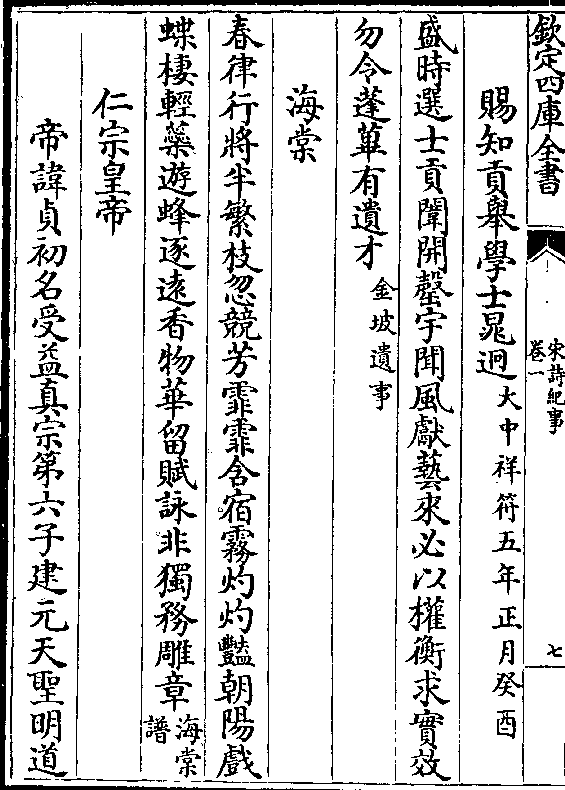 欽定四庫全書
宋詩紀事
卷一
七
賜知貢舉學士晁迥大中祥符五年正月癸酉
盛時選士貢闈開罄宇聞風獻藝來必以權衡求實效
勿令蓬蓽有遺才金坡遺事
海棠
春律行將半繁枝忽競芳霏霏含宿霧灼灼豔朝陽戲
蝶棲輕蘂遊蜂逐遠香物華留賦詠非獨務雕章海棠譜
仁宗皇帝
帝諱貞初名受益真宗第六子建元天聖明道